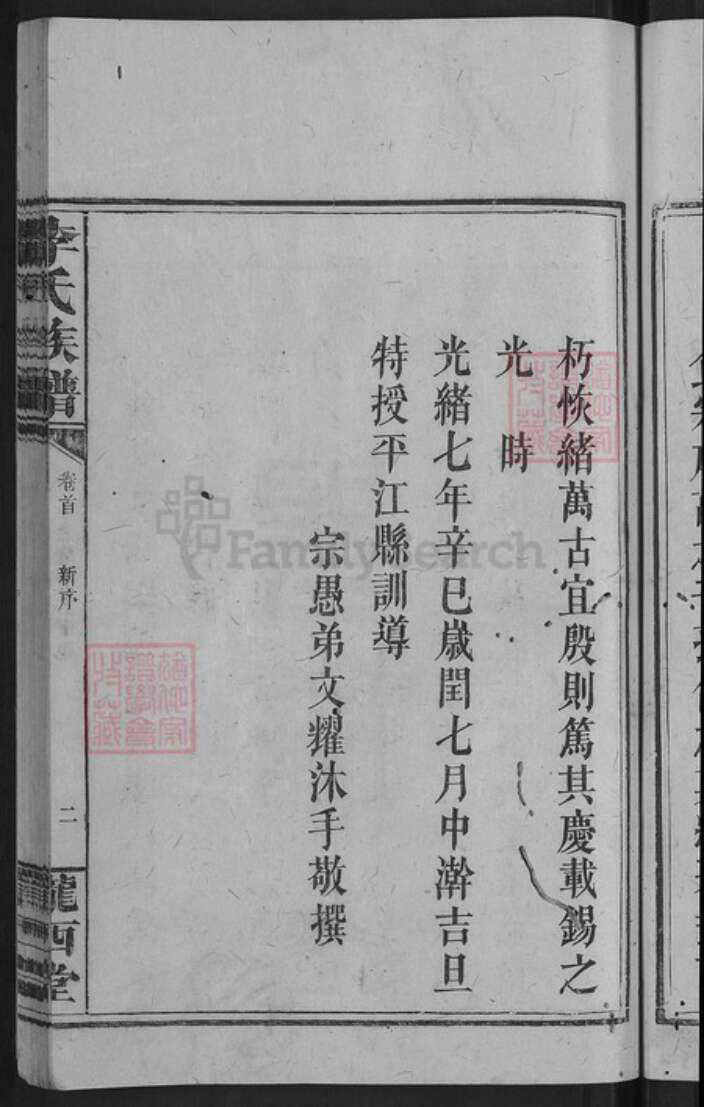 朽恢緒萬古宜殷則篤其慶載錫之
光時
光緒七年辛巳歲閏七月中澣吉旦
特授平江縣訓導
宗愚弟文耀沐手敬撰
李氏族譜
卷首
新序
二
隴西堂
FamilySearch